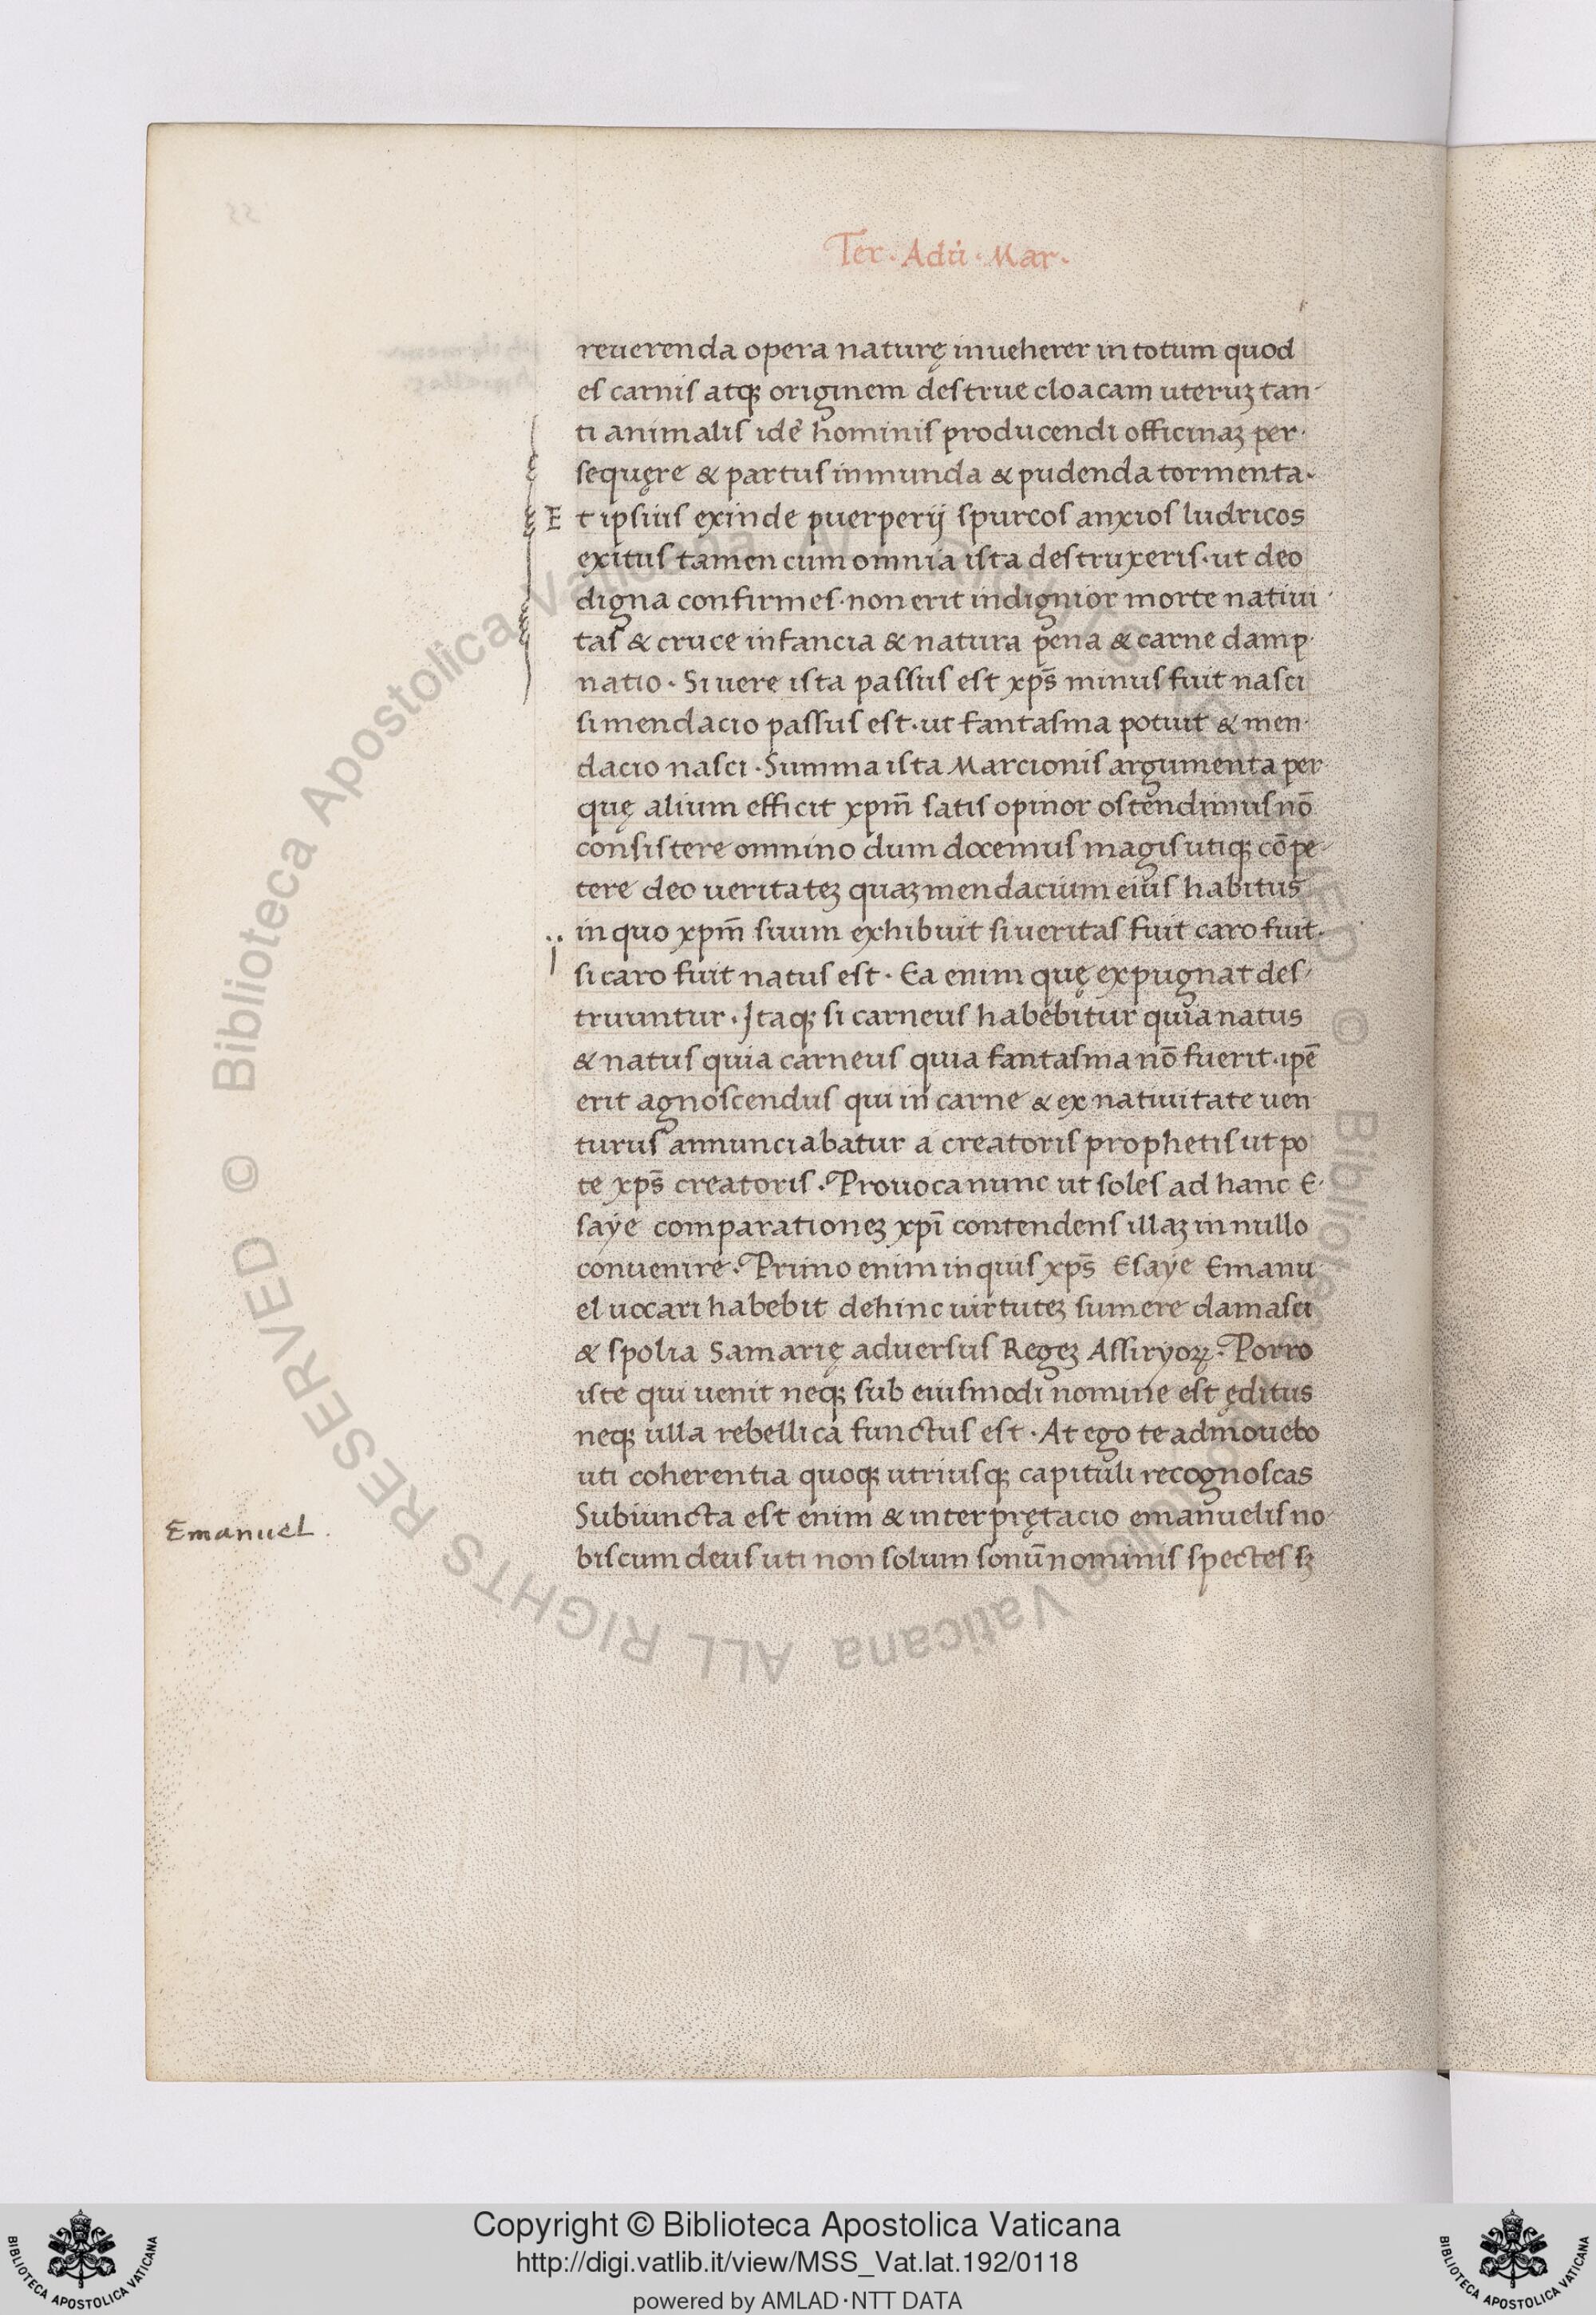 Ter · Adū · Mar ·
reuerenda opera naturę inueherer in totum quod
es carnis atqꝫ originem destrue cloacam uteruꝫ tan-
ti animalis idē hominis producendi officinaꝫ per-
sequęre & partus inmunda & pudenda tormenta.
E t ipsius exinde puerperij spurcos anxios ludricos
exitus tamen cum omnia ista destruxeris · ut deo
digna confirmes · non erit indignior morte natiui-
tas & cruce infancia & natura pena & carne damp-
natio · Si uere ista passus est xp̄s minus fuit nasci
si mendacio passus est · ut fantasma potuit & men-
dacio nasci · Summa ista Marcionis argumenta per
quę alium efficit xpm̄ satis opinor ostendimus nō
consistere omnino dum docemus magis utiqꝫ cōpe-
tere deo ueritateꝫ quaꝫ mendacium eius habitus
in quo xpm̄ suum exhibuit si ueritas fuit caro fuit.
si caro fuit natus est · Ea enim quę expugnat des-
truuntur · Itaqꝫ si carneus habebitur quia natus
& natus quia carneus quia fantasma nō fuerit · ipē
erit agnoscendus qui in carne & ex natiuitate uen
turus annunciabatur a creatoris prophetis ut po
te xp̄s creatoris · Prouoca nunc ut soles ad hanc E-
saye comparationeꝫ xpī contendens illaꝫ in nullo
conuenire · Primo enim inquis xp̄s Esaye Emanu
el uocari habebit dehinc uirtuteꝫ sumere damasci
& spolia Samarię aduersus Regeꝫ Assiryoꝝ · Porro
iste qui uenit neqꝫ sub eiusmodi nomine est ęditus
neqꝫ ulla rebellica functus est · At ego te admouebo
uti coherentia quoqꝫ utriusqꝫ capituli recognoscas
Subiuncta est enim & interprętacio emanuelis no-
Emanuel .
biscum deus uti non solum sonū nominis spectes sꝫ
Copyright © Biblioteca Apostolica Vaticana
http://digi.vatlib.it/view/MSS_Vat.lat.192/0118
powered by AMLAD·NTT DATA
BIBLIOTECA APOSTOLICA VATICANA
BIBLIOTECA APOSTOLICA VATICANA
© Biblioteca Apostolica Vaticana ALL RIGHTS RESERVED © Biblioteca Apostolica Vaticana ALL RIGHTS RESERVED